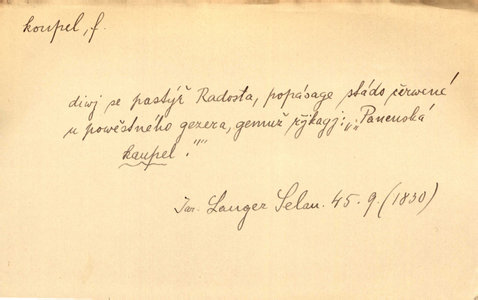 koupel, f.
diwj se pastýř Radosta, popásage stádo čerwené
u powěstného gezera, gemuž řýkagj: „Panenská
kaupel."
Jar. Langer Selan. 45. 9. (1830)